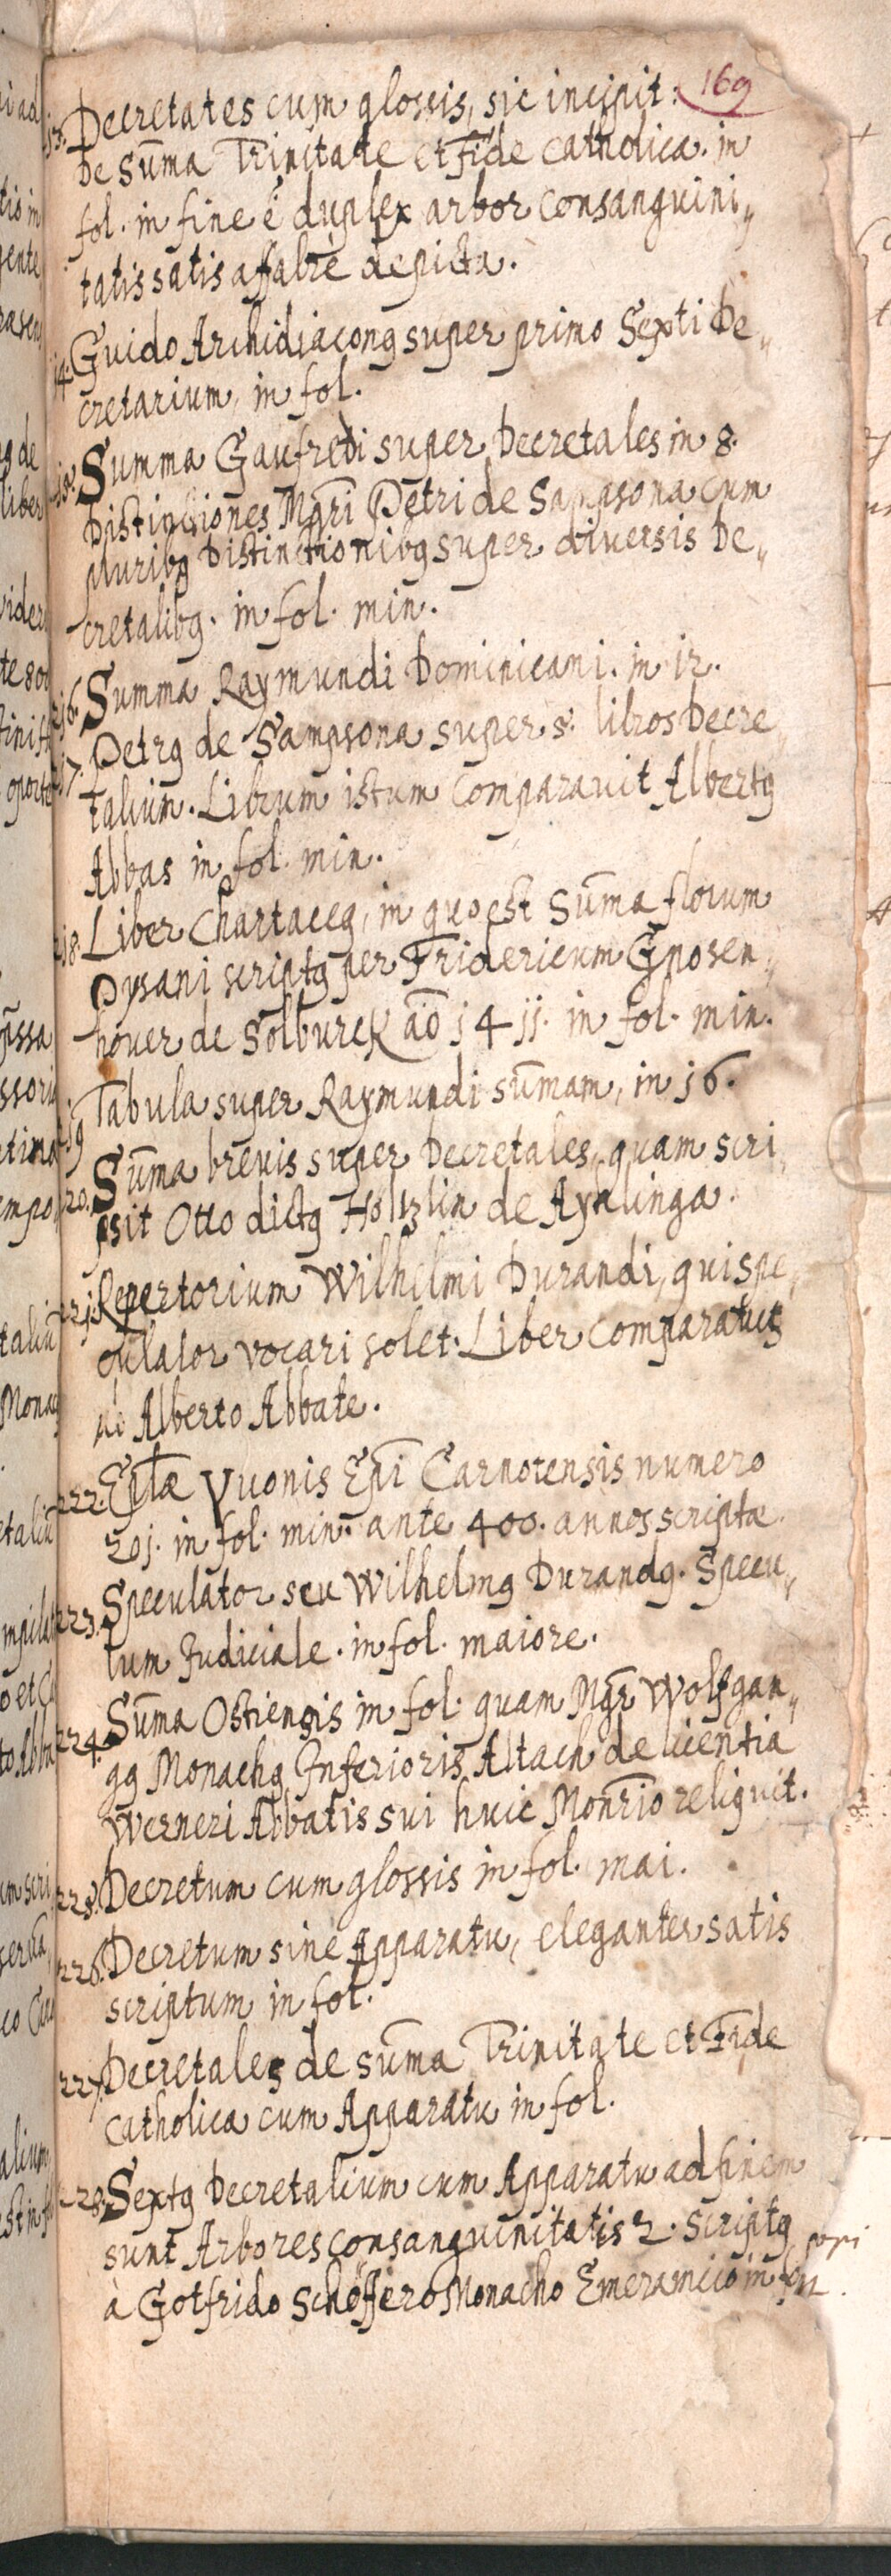 169
13. Decretates cum glossis, sic incipit:
De Sum̄a Trinitate et Fide catholica. in
fol. in fine ē duplex arbor consanguini„
tatis satis affabrè depicta.
14. Guido Archidiaconꝰ super primo Sexti De„
cretarium, in fol.
15. Summa Gaufredi super Decretales in 8.
Distinctiones Mgr̄i Petri de Sampsona cum
pluribꝰ Distinctionibꝰ super diversis De„
cretalibꝰ. in fol. min.
216. Summa Raymundi Dominicani. in 12.
217. Petrꝰ de Sampsona super 5. libros Decre„
talium. Librum istum comparavit Albertꝰ
Abbas in fol. min.
218. Liber Chartaceꝰ, in quo est Sum̄a florum
Pysani scriptꝰ per Fridericum Gnosen„
hover de Solburck ao̅ j4jj. in fol. min.
219 Tabula super Raymundi sum̄am, in j6.
220. Sum̄a brevis super Decretales, quam scri„
psit Otto dictꝰ Höltzlin de Ayhlinga.
22j. Repertorium Wilhelmi Durandi, qui spe„
culator vocari solet. Liber comparatus
ab Alberto Abbate.
222. Epl̄æ Yvonis Ep̄i Carnotensis numero
20j. in fol. min. ante 400. annos scriptæ.
223. Speculator seu Wilhelmꝰ Durandꝰ. Specu„
lum Judiciale. in fol. maiore.
224. Sum̄a Ostiensis in fol. quam Mgr̄ Wolfgan„
gꝰ Monachꝰ Inferioris Altach de licentia
Werneri Abbatis sui huic Monr̄io reliquit.
225. Decretum cum glossis in fol. mai.
226. Decretum sine Apparatu, eleganter satis
scriptum in fol.
227. Decretales de sum̄a Trinitate et Fide
Catholica cum Apparatu in fol.
228. Sextꝰ Decretalium cum Apparatu ad finem
sunt Arbores consanguinitatis 2. Scriptꝰ
à Gotfrido Schöffero Monacho Emeramico in fol.